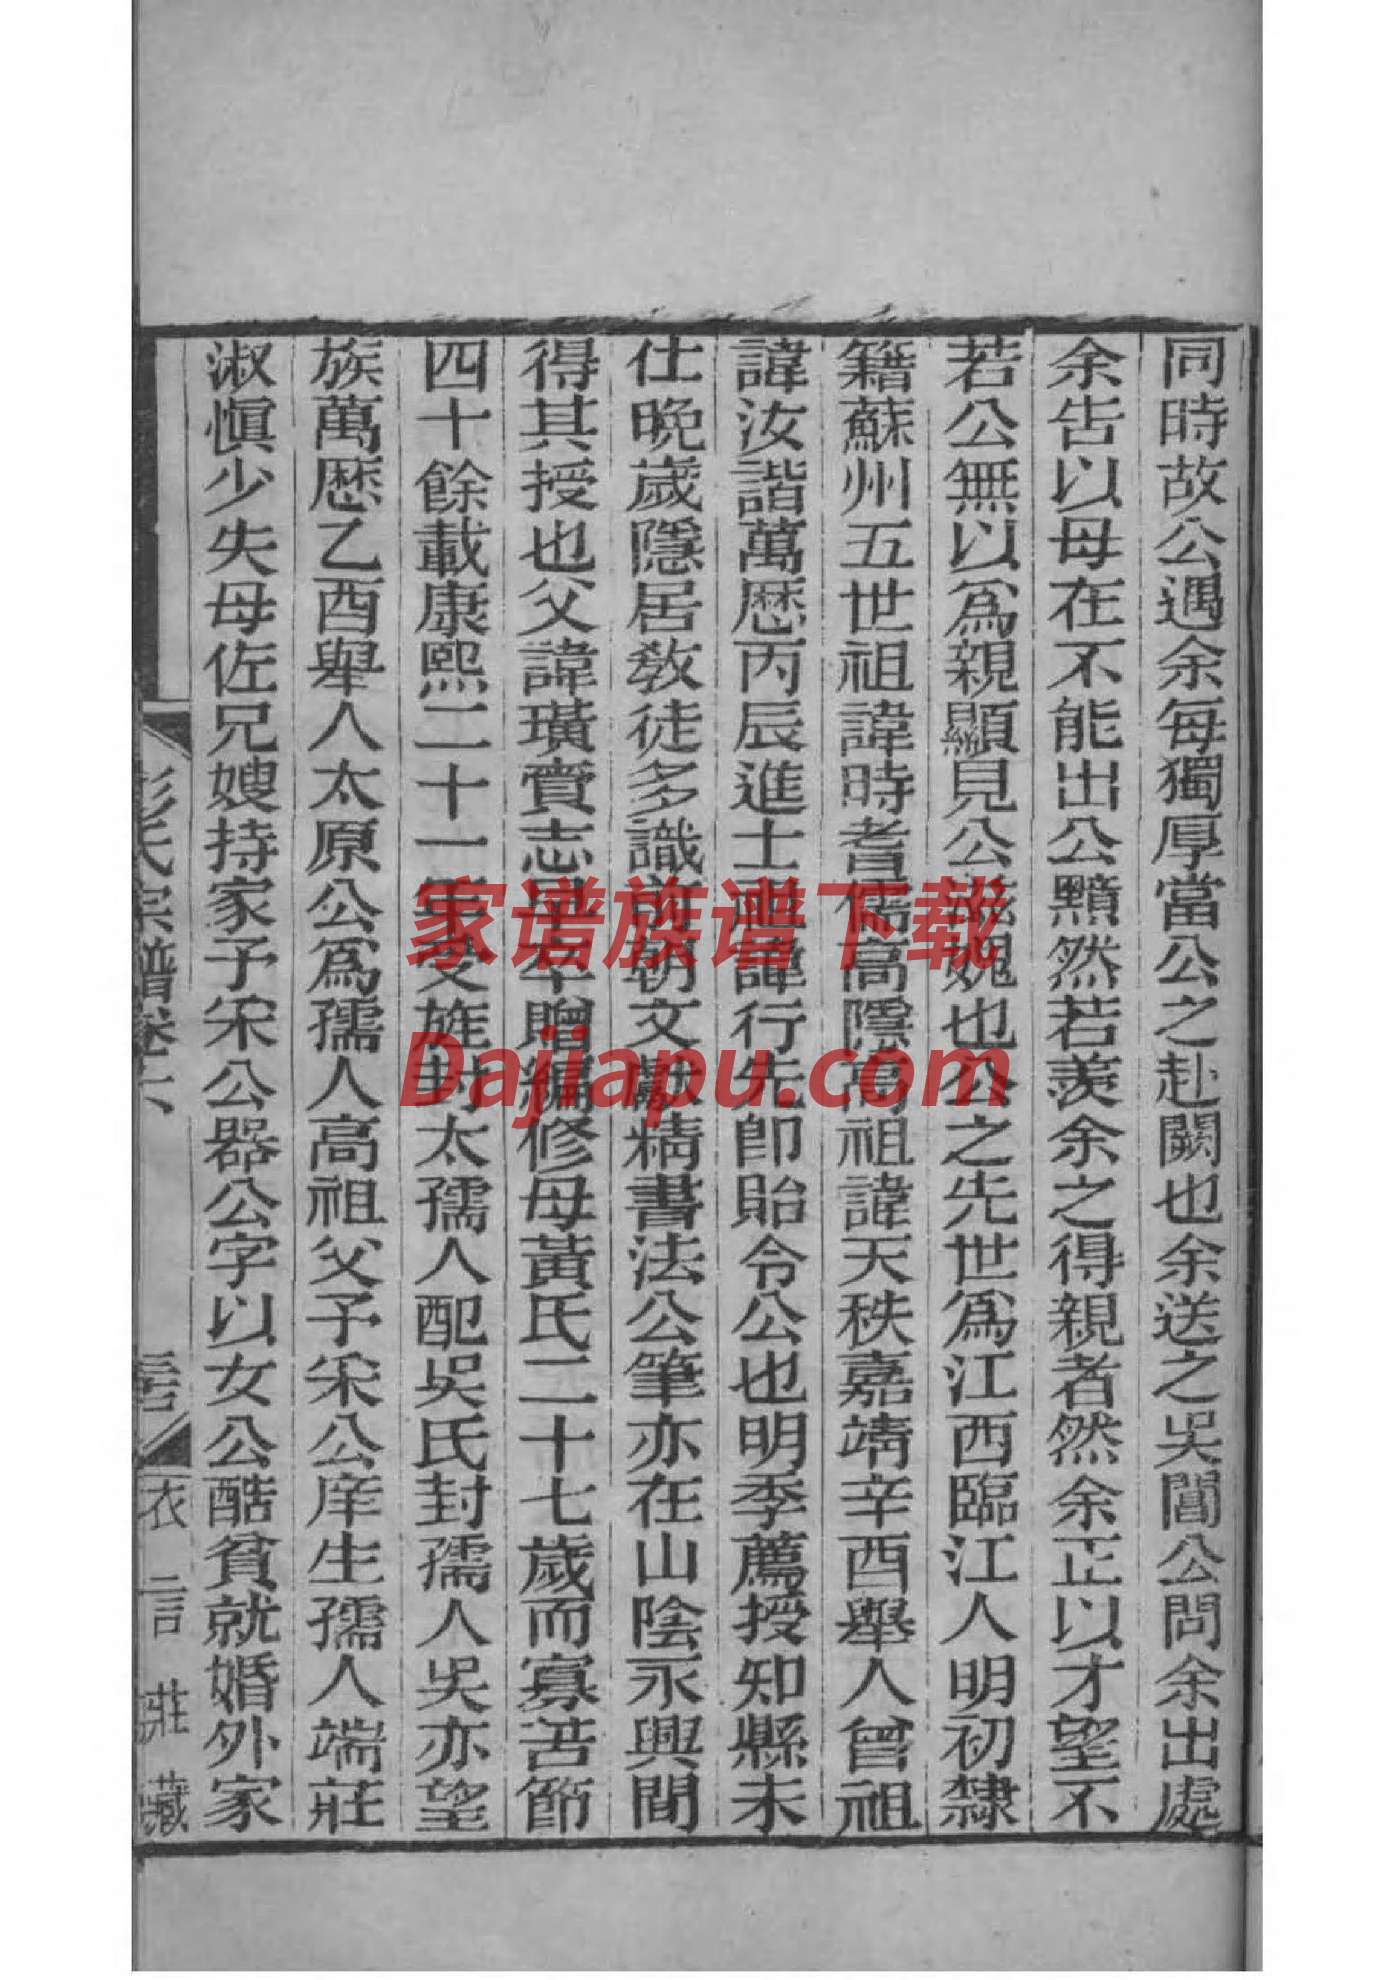 同時故公遇余每獨厚當公之赴闕也余送之吳閶公問余出處
余告以母在不能出公黯然若羨余之得親者然余正以才望不
若公無以爲親顯見公滋媿也公之先世爲江西臨江人明初隸
籍蘇州五世祖諱時耆儒高隱高祖諱天秩嘉靖辛酉舉人曾祖
諱汝諧萬歴丙辰進士祖諱行先卽貽令公也明季薦授知縣未
仕晩歲隱居敎徒多識前朝文獻精書法公筆亦在山陰永興間
得其授也父諱璜賫志早卒贈編修母黃氏二十七歲而寡苦節
四十餘載康熙二十一年受旌封太孺人配吳氏封孺人吳亦望
族萬歴乙酉舉人太原公爲孺人高祖父予宋公庠生孺人端莊
淑愼少失母佐兄嫂持家予宋公器公字以女公酷貧就婚外家
彭氏宗譜卷六
衣言莊藏
家谱族谱下载
Dajiapu.com